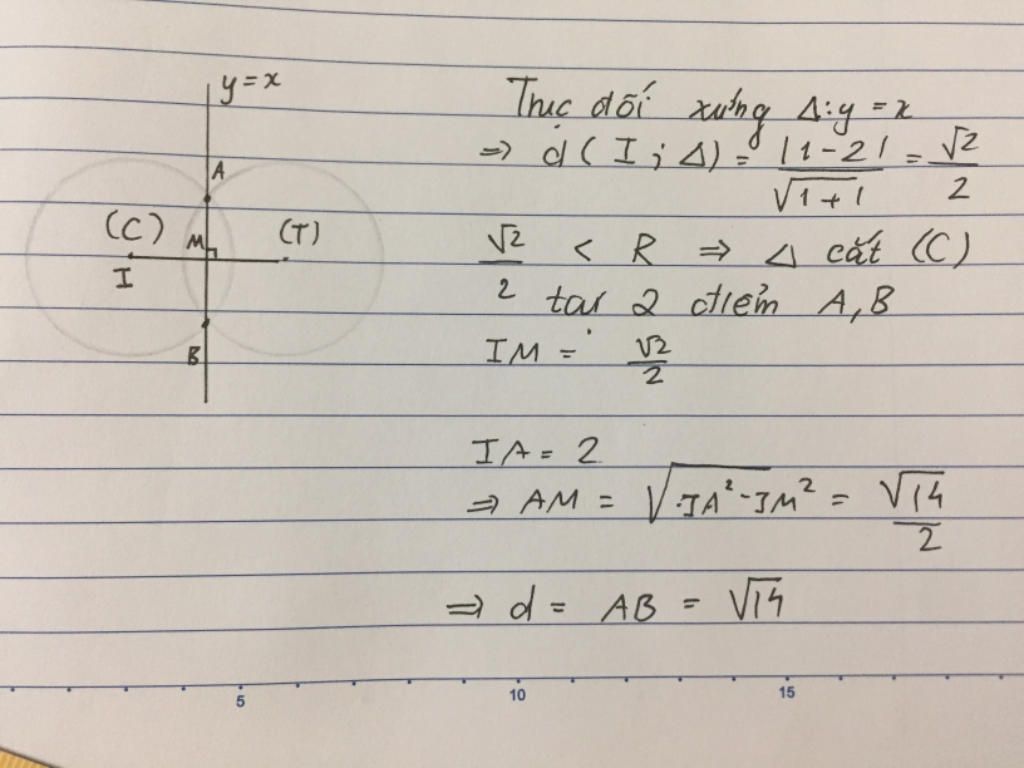 y = x
A
(C) M (T)
I
B
Trục đối xứng Δ: y = x
⇒ d(I; Δ) = |1-2| / √1+1 = √2/2
√2/2 < R ⇒ Δ cắt (C)
tại 2 điểm A, B
IM = √2/2
IA = 2
⇒ AM = √IA² - IM² = √14/2
⇒ d = AB = √14
5 10 15